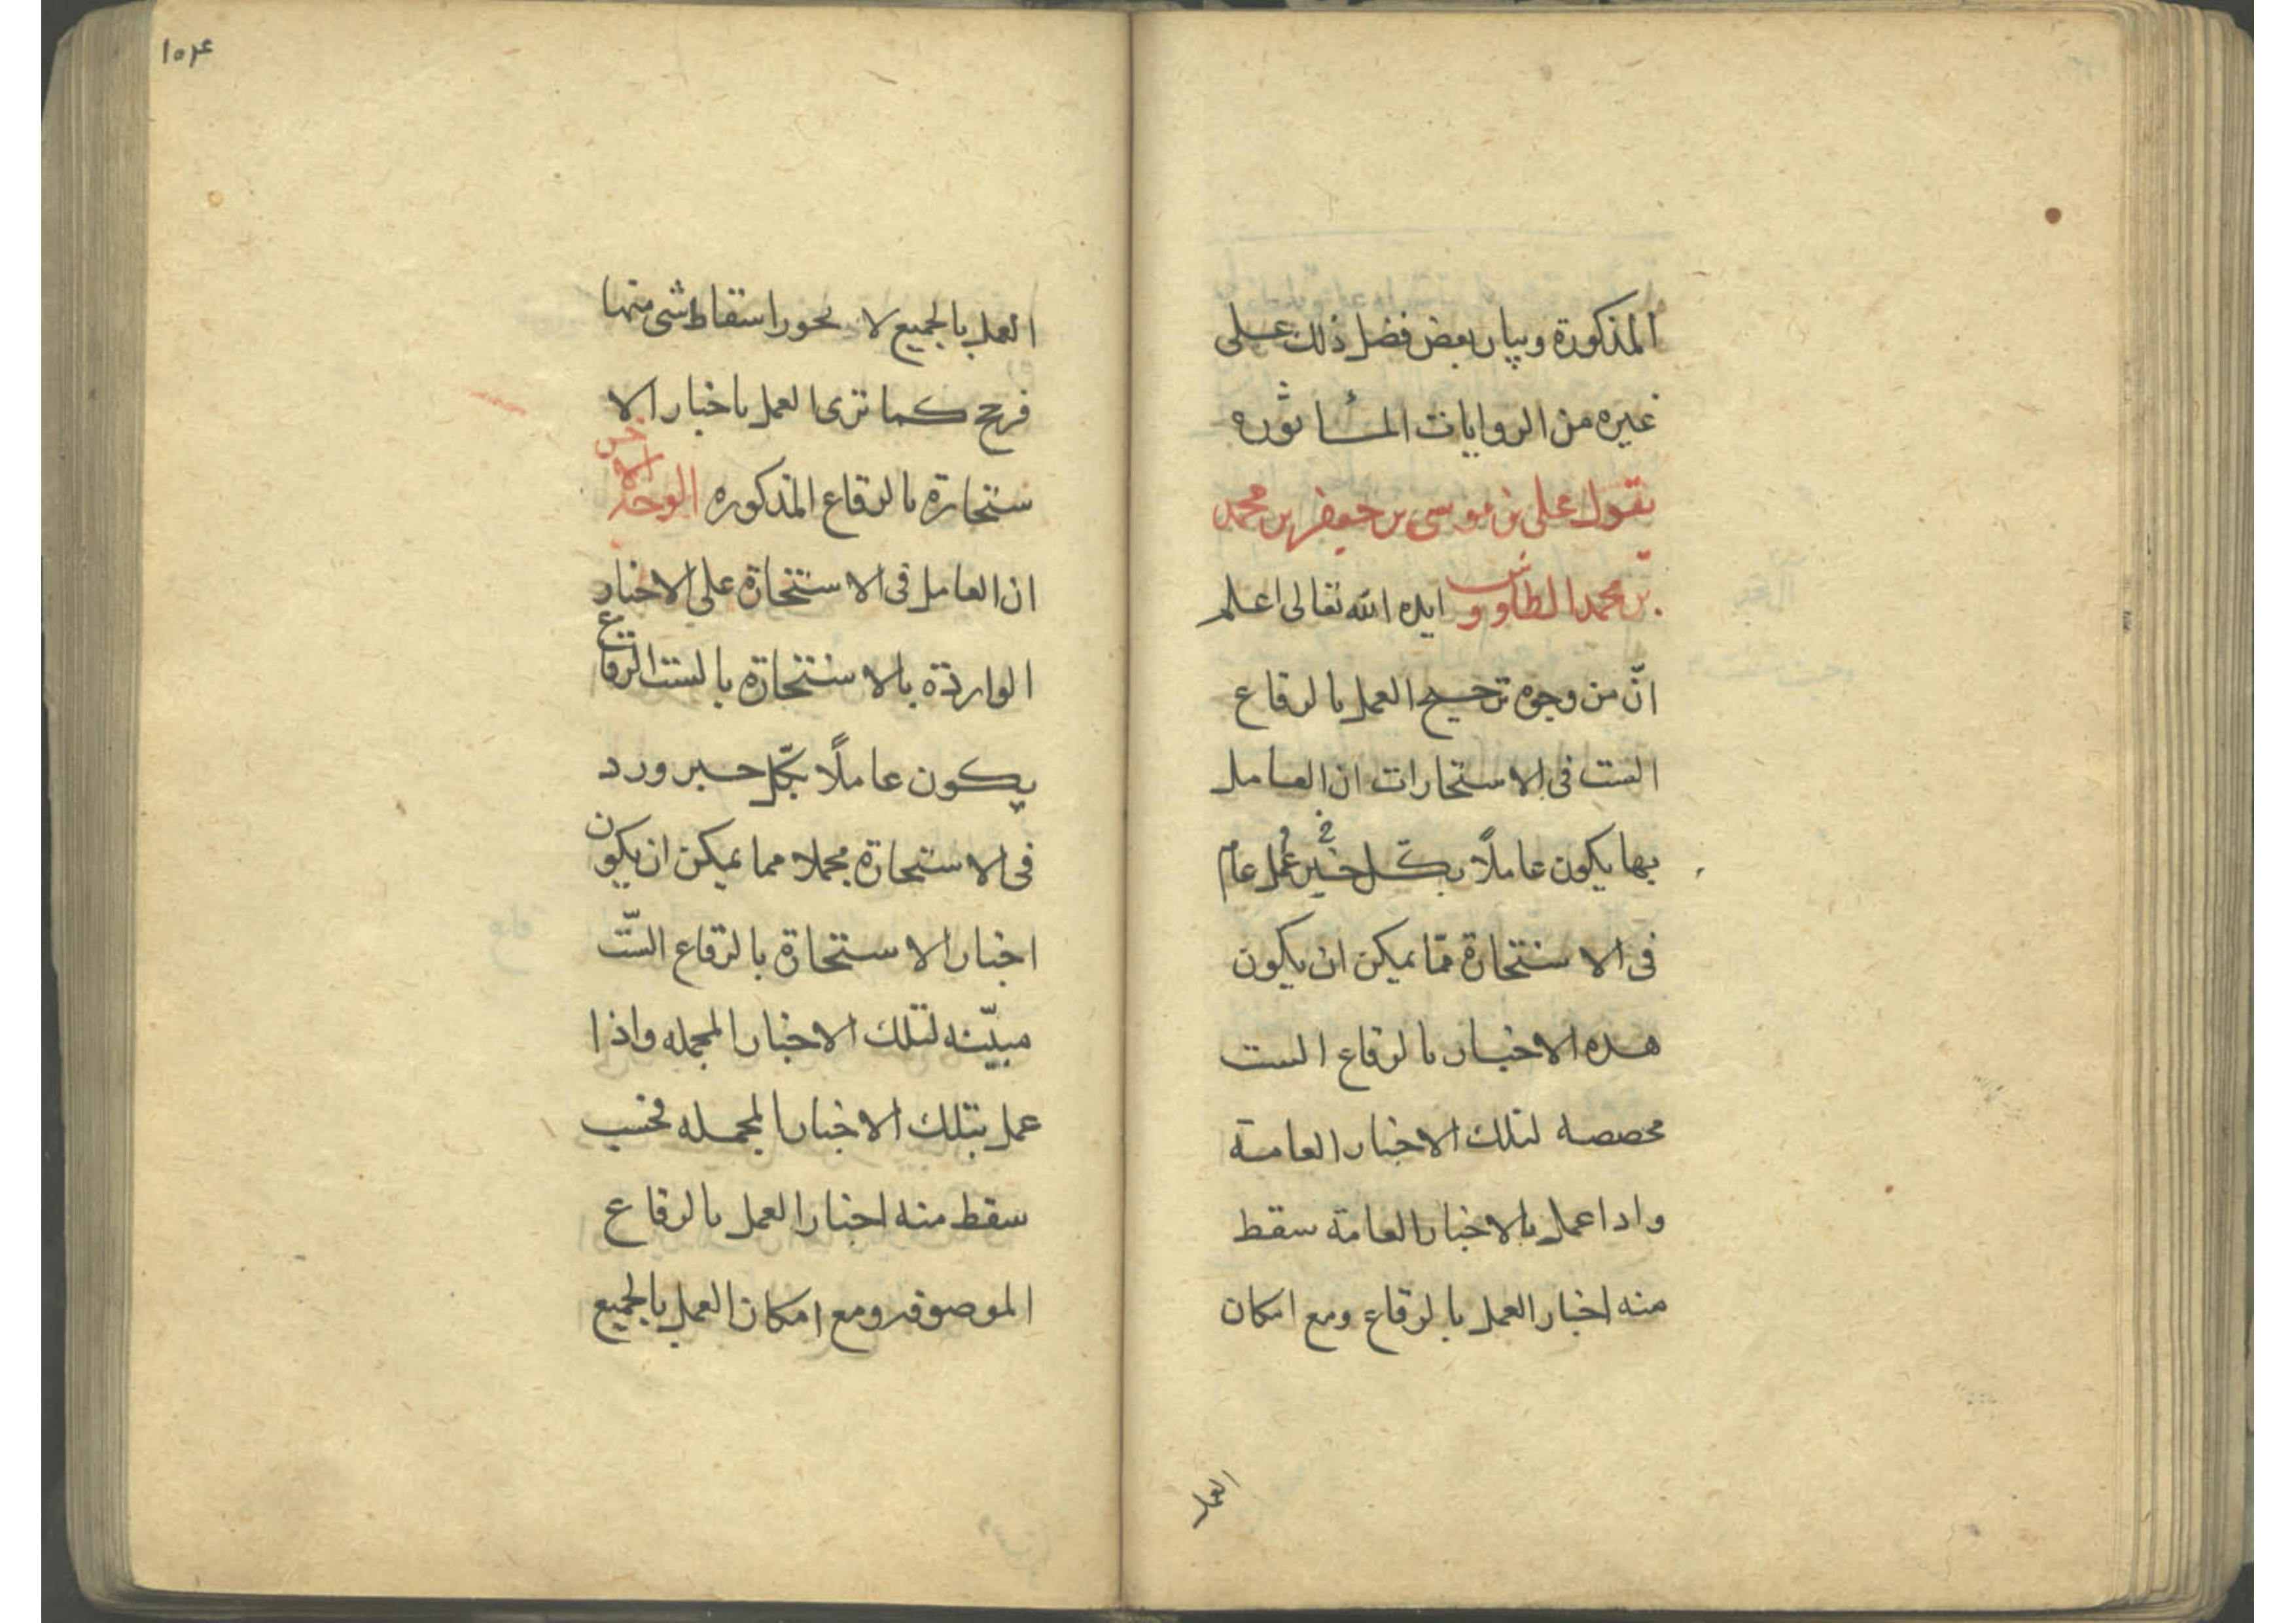 المذكورة وبيان بعض فضل ذلك على
غيره من الروايات المأثوره
يقول على بن موسى بن جعفر بن محمد
بن محمد الطاووس ايده الله تعالى اعلم
انّ من وجوه ترجيح العمل بالرقاع
الست فى الاستخارات ان العامل
بها يكون عاملًا بكل خبر عام
فى الاستخارة ممّا يمكن ان يكون
هذه الاخبار بالرقاع الست
مخصصه لتلك الاخبار العامة
واذا عمل بالاخبار العامة سقط
منه اخبار العمل بالرقاع ومع امكان
العمل
١٥٤
العمل بالجميع لا يجوز اسقاط شى منها
كما ترى العمل باخبار الا
ستخارة بالرقاع المذكوره الوجه الاخر
ان العامل فى الاستخارة على الاخبار
الواردة بالاستخارة بالست الرقاع
يكون عاملًا بكلّ خبر ورد
فى الاستخارة مجملا مما يمكن ان يكون
اخبار الاستخارة بالرقاع الستّ
مبيّنه لتلك الاخبار المجمله واذا
عمل بتلك الاخبار المجمله فحسب
سقط منه اخبار العمل بالرقاع
الموصوفه ومع امكان العمل بالجميع